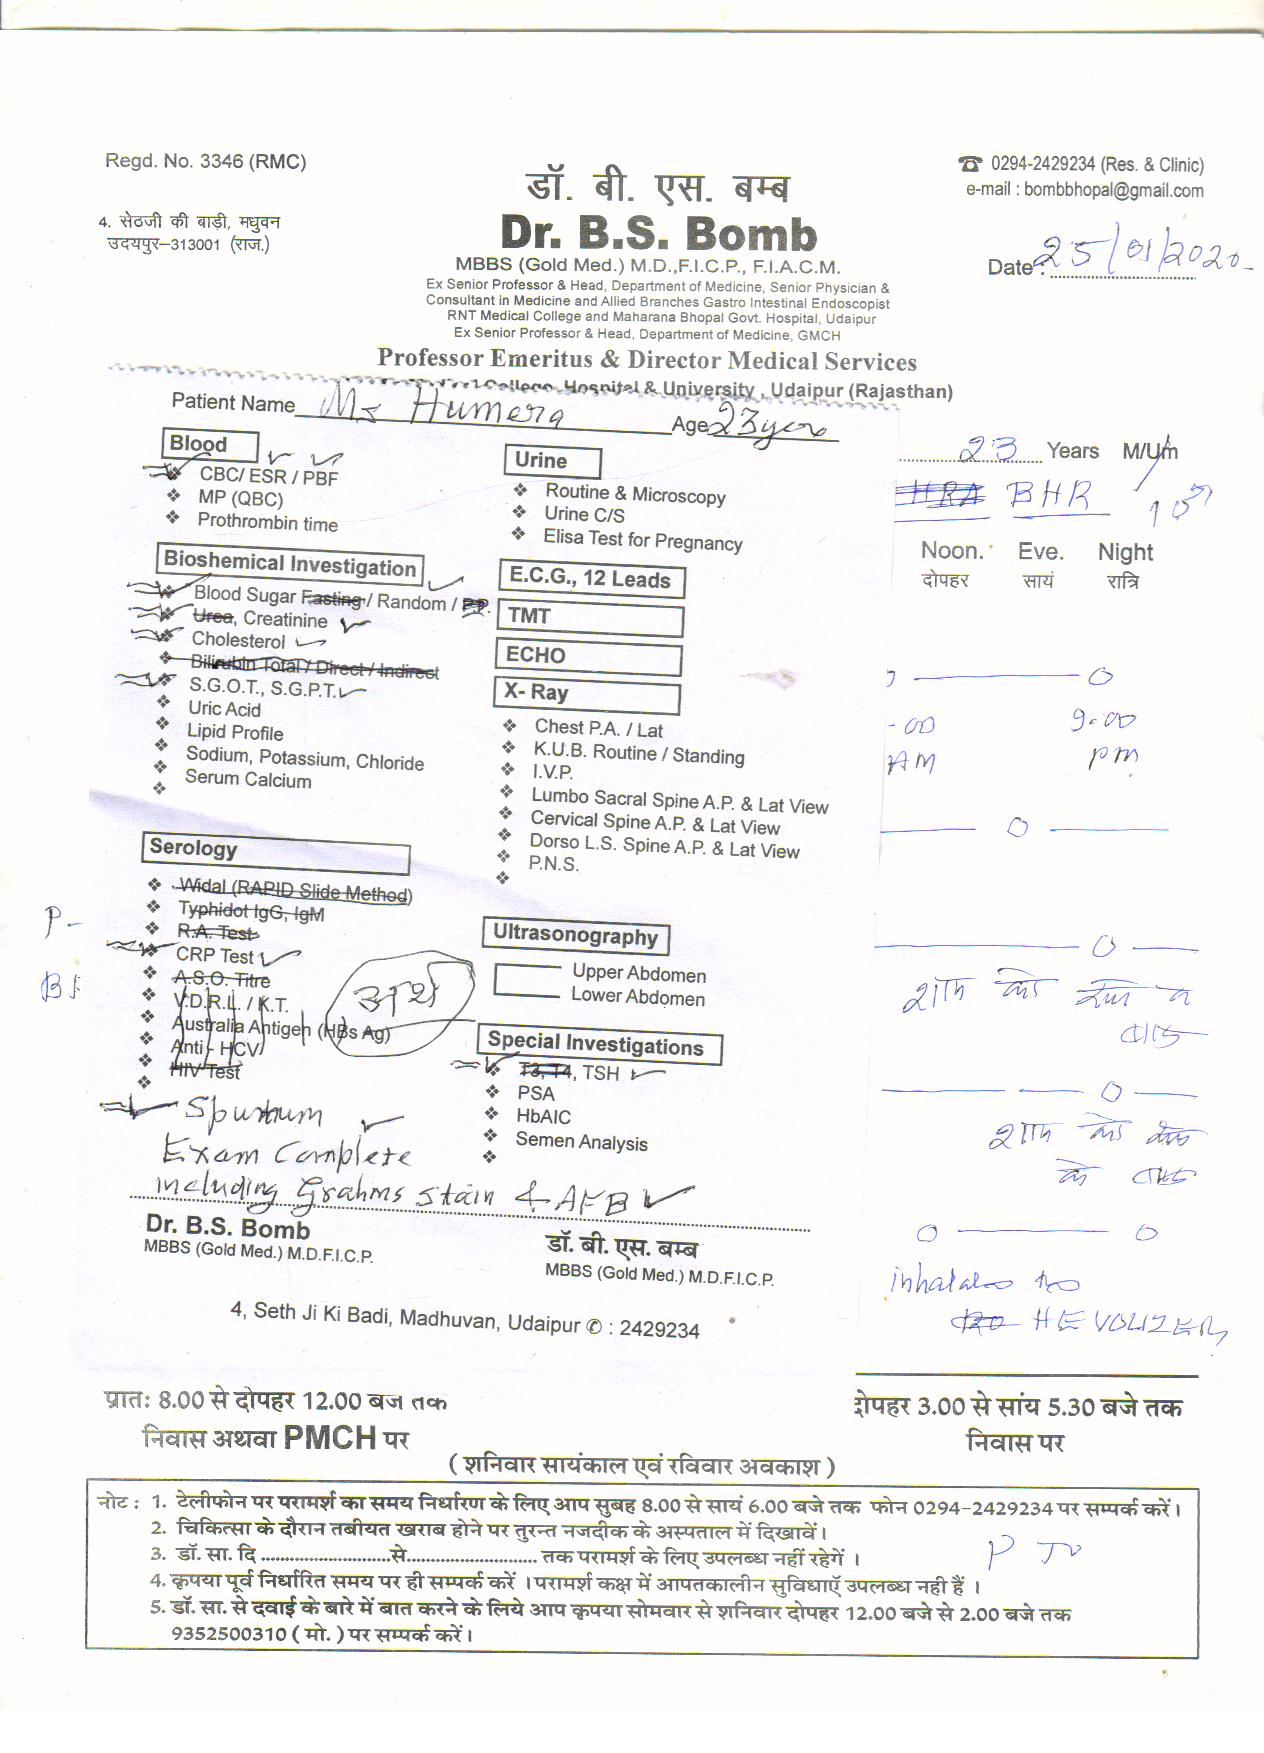 Regd. No. 3346 (RMC)
☎ 0294-2429234 (Res. & Clinic)
e-mail : bombbhopal@gmail.com
4. सेठजी की बाड़ी, मधुवन
उदयपुर–313001 (राज.)
डॉ. बी. एस. बम्ब
Dr. B.S. Bomb
MBBS (Gold Med.) M.D.,F.I.C.P., F.I.A.C.M.
Date : 25/01/2020
Ex Senior Professor & Head, Department of Medicine, Senior Physician &
Consultant in Medicine and Allied Branches Gastro Intestinal Endoscopist
RNT Medical College and Maharana Bhopal Govt. Hospital, Udaipur
Ex Senior Professor & Head, Department of Medicine, GMCH
Professor Emeritus & Director Medical Services
College, Hospital & University , Udaipur (Rajasthan)
Patient Name Ms Humera Age 23
Blood
CBC/ ESR / PBF
MP (QBC)
Prothrombin time
Bioshemical Investigation
Blood Sugar Fasting / Random / P.P.
Urea, Creatinine
Cholesterol
Bilirubin Total / Direct / Indirect
S.G.O.T., S.G.P.T.
Uric Acid
Lipid Profile
Sodium, Potassium, Chloride
Serum Calcium
Serology
Widal (RAPID Slide Method)
Typhidot IgG, IgM
R.A. Test
CRP Test
A.S.O. Titre
V.D.R.L. / K.T.
Australia Antigen (HBs Ag)
Anti - HCV
HIV Test
Sputum
Exam Complete
including Grahms stain & AFB
Urine
Routine & Microscopy
Urine C/S
Elisa Test for Pregnancy
E.C.G., 12 Leads
TMT
ECHO
X- Ray
Chest P.A. / Lat
K.U.B. Routine / Standing
I.V.P.
Lumbo Sacral Spine A.P. & Lat View
Cervical Spine A.P. & Lat View
Dorso L.S. Spine A.P. & Lat View
P.N.S.
Ultrasonography
Upper Abdomen
Lower Abdomen
Special Investigations
T3, T4, TSH
PSA
HbAIC
Semen Analysis
Dr. B.S. Bomb
MBBS (Gold Med.) M.D.F.I.C.P.
डॉ. बी. एस. बम्ब
MBBS (Gold Med.) M.D.F.I.C.P.
4, Seth Ji Ki Badi, Madhuvan, Udaipur ✆ : 2429234
23 Years M/
BHR
Noon. Eve. Night
दोपहर सायं रात्रि
9-00
AM pm
P -
प्रातः 8.00 से दोपहर 12.00 बजे तक
निवास अथवा PMCH पर
दोपहर 3.00 से सांय 5.30 बजे तक
निवास पर
( शनिवार सायंकाल एवं रविवार अवकाश )
नोट : 1. टेलीफोन पर परामर्श का समय निर्धारण के लिए आप सुबह 8.00 से सायं 6.00 बजे तक फोन 0294-2429234 पर सम्पर्क करें।
2. चिकित्सा के दौरान तबीयत खराब होने पर तुरन्त नजदीक के अस्पताल में दिखावें।
3. डॉ. सा. दि ............................से............................ तक परामर्श के लिए उपलब्ध नहीं रहेगें ।
4. कृपया पूर्व निर्धारित समय पर ही सम्पर्क करें । परामर्श कक्ष में आपतकालीन सुविधाएॅ उपलब्ध नही हैं ।
5. डॉ. सा. से दवाई के बारे में बात करने के लिये आप कृपया सोमवार से शनिवार दोपहर 12.00 बजे से 2.00 बजे तक
9352500310 ( मो. ) पर सम्पर्क करें।